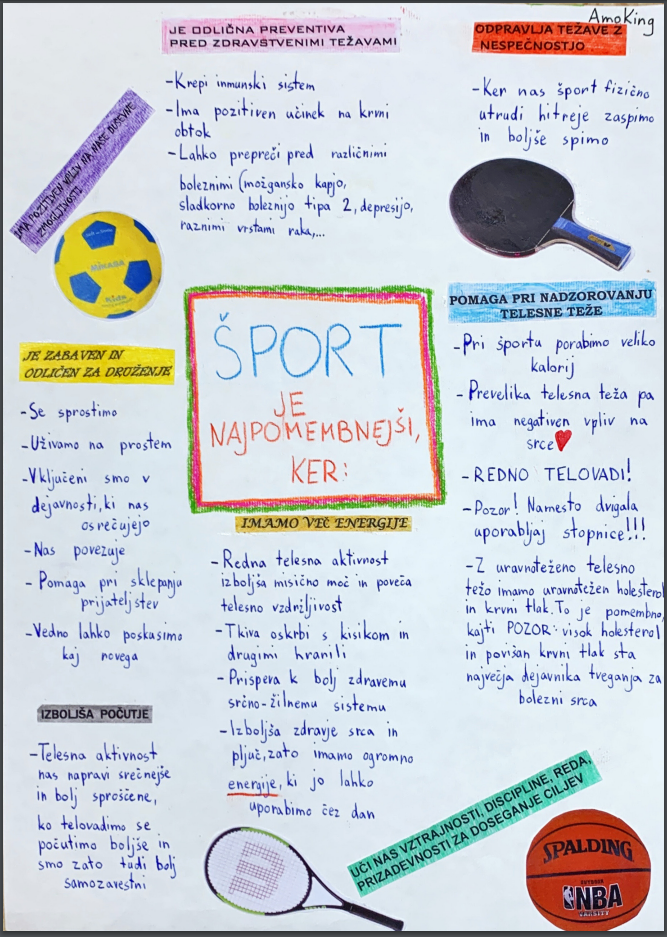 AmoKing
JE ODLIČNA PREVENTIVA
PRED ZDRAVSTVENIMI TEŽAVAMI
-Krepi inmunski sistem
-Ima pozitiven učinek na krvni
obtok
-Lahko prepreči pred različnimi
boleznimi (možgansko kapjo,
sladkorno boleznijo tipa 2, depresijo,
raznimi vrstami raka,...
ODPRAVLJA TEŽAVE Z
NESPEČNOSTJO
-Ker nas šport fizično
utrudi hitreje zaspimo
in boljše spimo
IMA POZITIVEN VPLIV NA NAŠE DUŠEVNE
ZMOGLJIVOSTI
MIKASA
ŠPORT
JE
NAJPOMEMBNEJŠI,
KER:
POMAGA PRI NADZOROVANJU
TELESNE TEŽE
-Pri športu porabimo veliko
kalorij
-Prevelika telesna teža pa
ima negativen vpliv na
srce
-REDNO TELOVADI!
-Pozor! Namesto dvigala
uporabljaj stopnice!!!
-Z uravnoteženo telesno
težo imamo uravnotežen holesterol
in krvni tlak. To je pomembno,
kajti POZOR: visok holesterol
in povišan krvni tlak sta
največja dejavnika tveganja za
bolezni srca
JE ZABAVEN IN
ODLIČEN ZA DRUŽENJE
-Se sprostimo
-Uživamo na prostem
-Vključeni smo v
dejavnosti, ki nas
osrečujejo
-Nas povezuje
-Pomaga pri sklepanju
prijateljstev
-Vedno lahko poskusimo
kaj novega
IMAMO VEČ ENERGIJE
-Redna telesna aktivnost
izboljša mišično moč in poveča
telesno vzdržljivost
-Tkiva oskrbi s kisikom in
drugimi hranili
-Prispera k bolj zdravemu
srčno-žilnemu sistemu
-Izboljša zdravje srca in
pljuč, zato imamo ogromno
energije, ki jo lahko
uporabimo čez dan
IZBOLJŠA POČUTJE
-Telesna aktivnost
nas napravi srečnejše
in bolj sproščene,
ko telovadimo se
počutimo boljše in
smo zato tudi bolj
samozavestni
UČI NAS VZTRAJNOSTI, DISCIPLINE, REDA,
PRIZADEVNOSTI ZA DOSEGANJE CILJEV
SPALDING
NBA
VARSITY